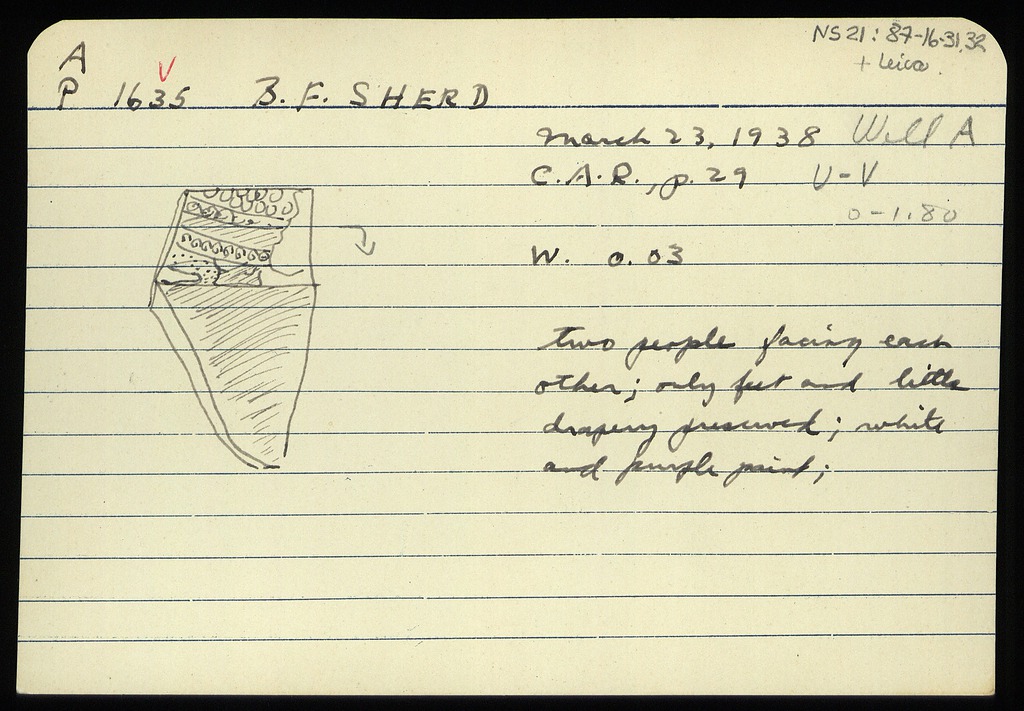 NS21: 87-16-31,32
+ Leica.
A
V
P 1635 B. F. SHERD
March 23, 1938 Well A
C.A.R., p. 29 U-V
0-1.80
W. 0.03
two people facing each
other; only feet and little
drapery preserved; white
and purple paint;